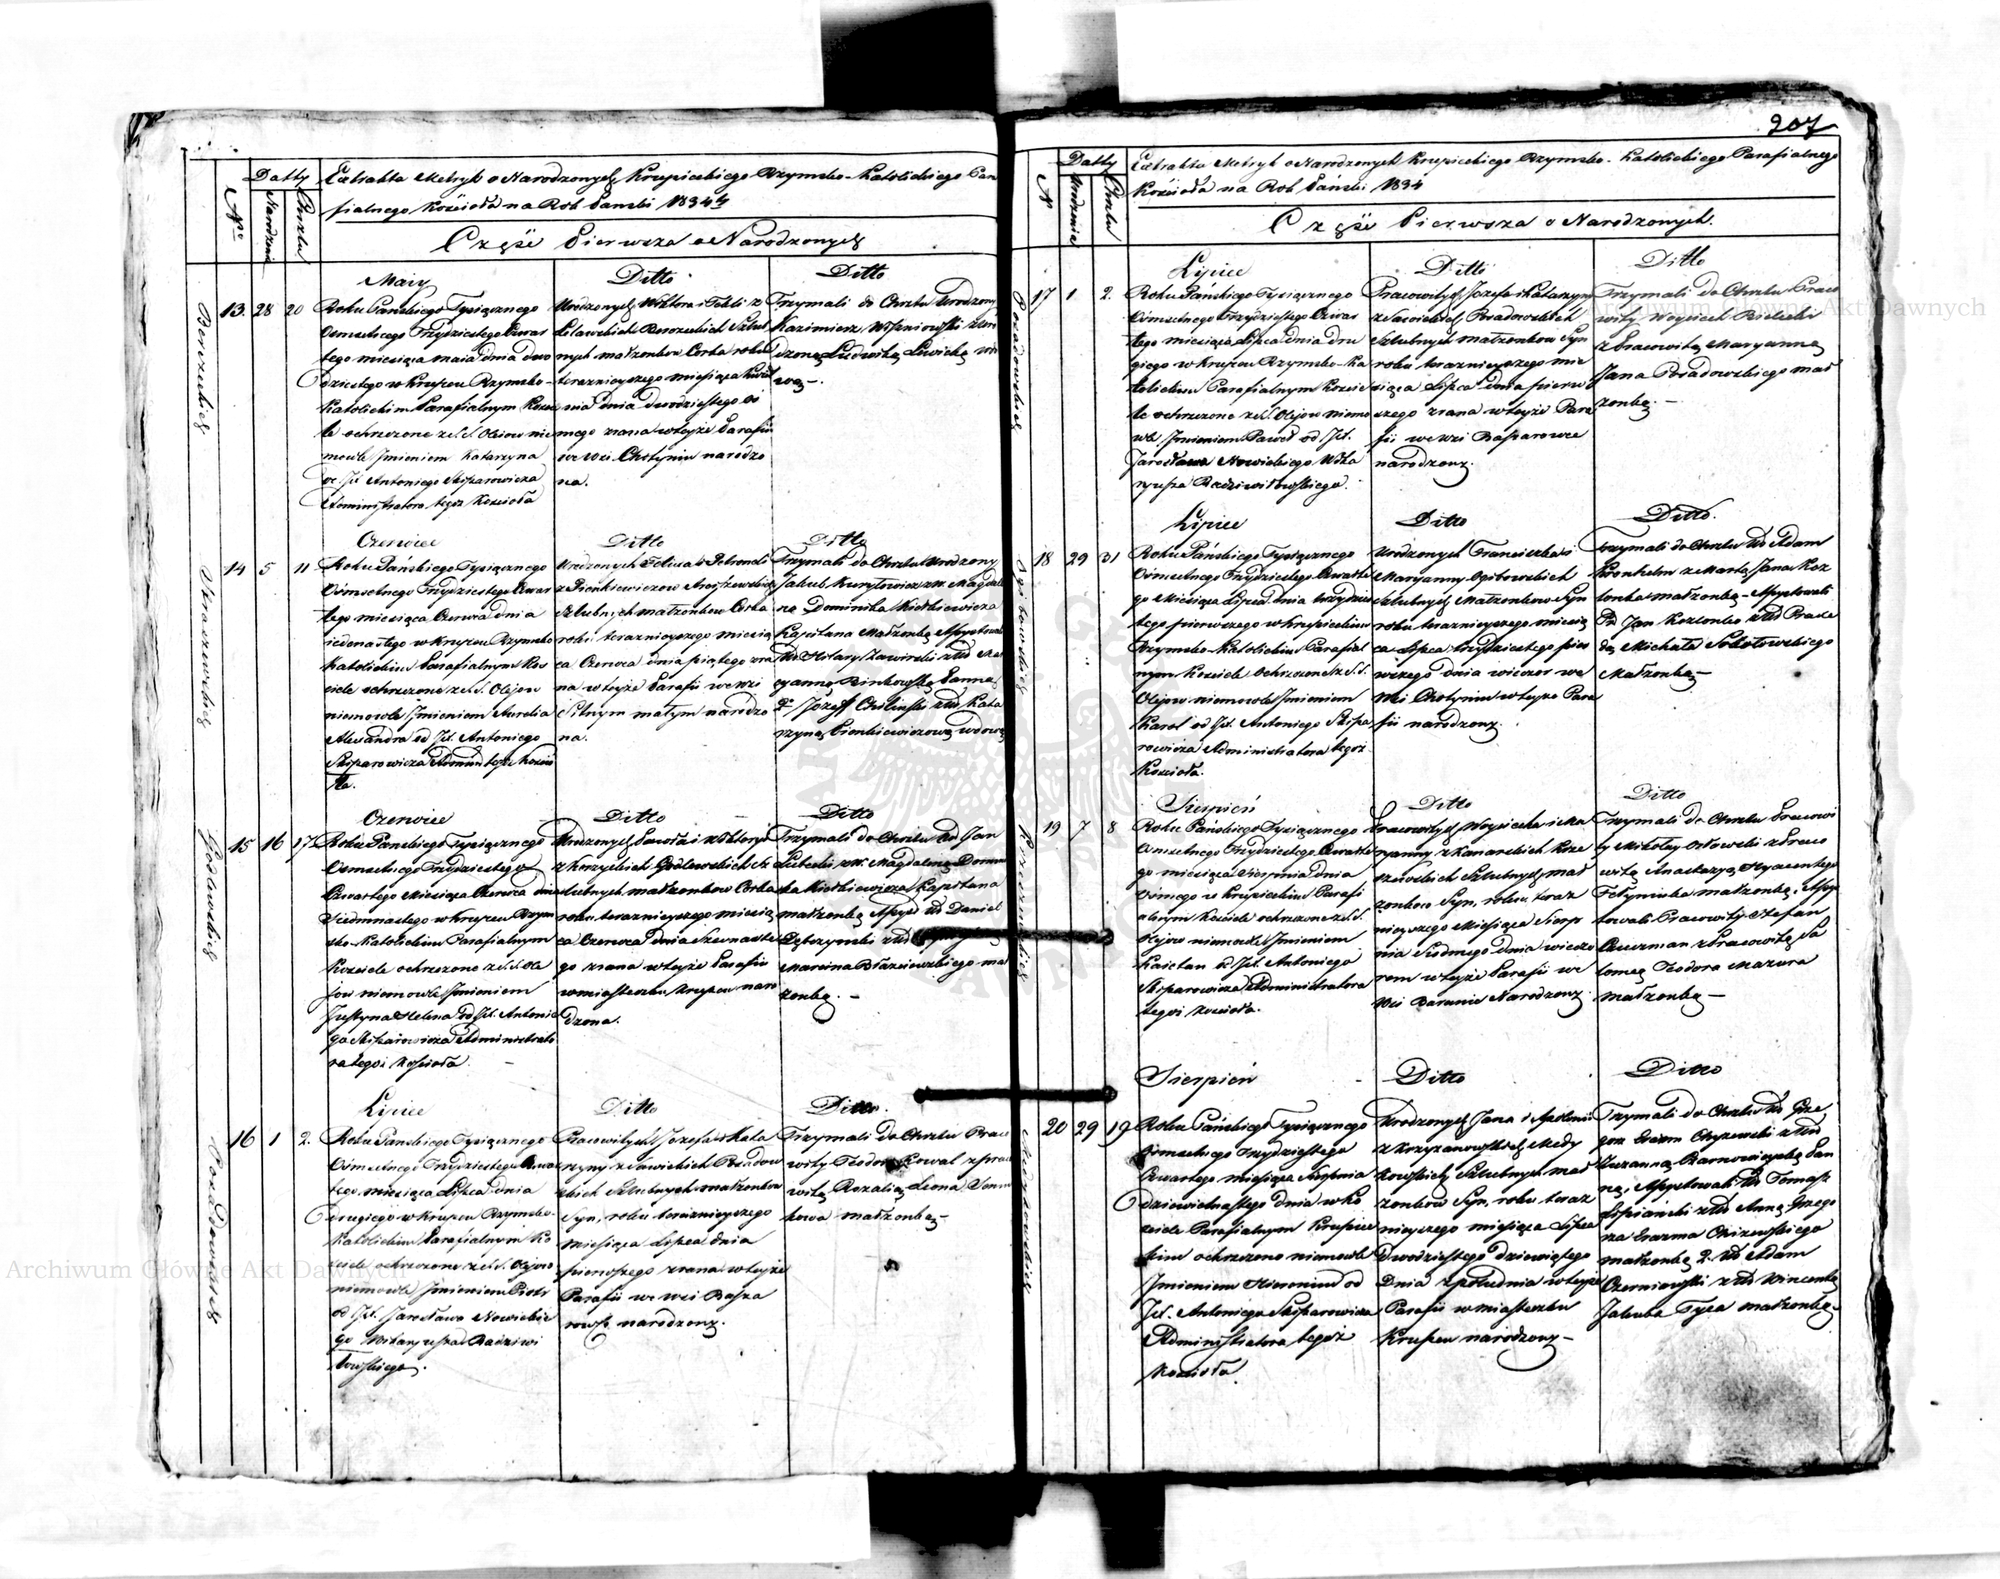 207
Extrakta Metryk o Narodzonych Krupieckiego Rzymsko-Katolickiego Pa
rafialnego Kościoła na Rok Pański 1834ty
Część Pierwsza o Narodzonych
No
Datty
Narodzenia
Chrztu
13 28 20
Maiy
Roku Pańskiego Tysiącznego
Osmsetnego Trzydziestego Czwar
tego miesiąca maia dnia dwu
dziestego w Krupcu Rzymsko-
Katolickim Parafialnym Kosciè
le ochrzczone z S.S. Olejow nie
mowle Jmieniem Katarzyna
Antoniego Skiparowicza
Administratora tegoż Kościoła
Ditto
Urodzonych Wiktora i Tekli z
Szlub
nych małżonkow Corka roku
teraznieyszego miesiąca Kwiet
nia dnia dwudziestego os
mego zrana w teyże Parafii
we Wsi Chotyniu narodzo
na.
Ditto
Trzymali do Chrztu Urodzony
Kazimierz Wiszniowski z Uro
dzoną Ludwiką Lewicką
14 5 11
Czerwiec
Roku Pańskiego Tysiącznego
Osmsetnego Trzydziestego Czwar
tego miesiąca Czerwca dnia
iedenastego w Krupcu Rzymsko
Katolickim Parafialnym Kos
ciele ochrzczone z S.S. Olejow
niemowle Jmieniem Aurelia
Alexandra od Jx. Antoniego
Skiparowicza Admin. tegoż Kościo
ła.
Ditto
Urodzonych Felixa i Petroneli
z Pienkiewiczow
Szlubnych małżonkow Corka
roku teraznieyszego miesią
ca Czerwca dnia piątego zra
na w teyże Parafii we Wsi
Sitnym małym narodzo
na.
Ditto
Trzymali do Chrztu Urodzony
Jakub Kuryłowicz z W. Magdale
ną Dominika Kiełkiewicza
Kapitana Małżonką Assystowali
Ur. Hilary Zawirski z Ur. Ma
ryanną Binkowską Panną
2o Józeff Chilinski z Ur. Kata
rzyną Pienkiewiczową wdową
15 16 17
Czerwiec
Roku Pańskiego Tysiącznego
Osmsetnego Trzydziestego
Czwartego Miesiąca Czerwca dnia
Siedmnastego w Krupcu Rzym
sko-Katolickim Parafialnym
Kościele ochrzczone z S.S. Ole
jow niemowle Jmieniem
Justyna Helena od Jx. Antonie
go Skiparowicza Administrato
ra tegoż Kościoła.
Ditto
Urodzonych Pawła i Wiktoryi
z Korzyckich Godlewskich Sz
lubnych małżonkow Corka
roku teraznieyszego miesią
ca Czerwca dnia Szesnaste
go zrana w teyże Parafii
w miasteczku Krupcu naro
dzona.
Ditto
Trzymali do Chrztu Ur. Jan
Lubecki z W. Magdaleną Domini
ka Kiełkiewicza Kapitana
małżonką Assys. Ur. Daniel
Marcina Błażeiowskiego mał
żonką. —
16 1 2.
Lipiec
Roku Pańskiego Tysiącznego
Osmsetnego Trzydziestego Czwar
tego miesiąca Lipca dnia
drugiego w Krupcu Rzymsko-
Katolickim Parafialnym Ko
ściele ochrzczone z S.S. Olejow
niemowle Jmieniem Piotr
od Jx. Jarosława Nowickie
go Wikaryusza Radziwi
łłowskiego.
Ditto
Pracowitych Jozefa i Kata
rzyny z Sawickich Posadow
skich Szlubnych małżonkow
Syn, roku teraznieyszego
Miesiąca Lipca dnia
pierwszego zrana w teyże
Parafii we Wsi Baspa
rowce narodzony.
Ditto
Trzymali do Chrztu Praco
wity Teodor Kowal z Praco
witą Rozalią Leona
małżonką —
Extrakta Metryk o Narodzonych Krupieckiego Rzymsko-Katolickiego Parafialnego
Kościoła na Rok Pański 1834
Część Pierwsza o Narodzonych.
N
Datty
Urodzenia
Chrztu
17 1 2.
Lipiec
Roku Pańskiego Tysiącznego
Osmsetnego Trzydziestego Czwar
tego miesiąca Lipca dnia dru
giego w Krupcu Rzymsko-Ka
tolickim Parafialnym Koscie
le ochrzczone z S.S. Olejow niemo
wle Jmieniem Paweł od Jx.
Jarosława Nowickiego Wika
ryusza Radziwiłłowskiego.
Ditto
Pracowitych Jozefa i Katarzyny
z Sawickich Posadowskich
Szlubnych małżonkow Syn
roku teraznieyszego mie
siąca Lipca dnia pierw
szego zrana w teyże Para
fii we Wsi Basparowce
narodzony.
Ditto
Trzymali do Chrztu Praco
wity Woyciech Bielecki
z Pracowitą Maryanną
Jana Posadowskiego mał
żonką. —
18 29 31
Lipiec
Roku Pańskiego Tysiącznego
Osmsetnego Trzydziestego Czwarte
go Miesiąca Lipca dnia trzydzies
tego pierwszego w Krupieckim
Rzymsko-Katolickim Parafial
nym Kościele Ochrzczone z S.S.
Olejow niemowle Jmieniem
Karol od Jx. Antoniego Skipa
rowicza Administratora tegoż
Kościoła.
Ditto
Urodzonych Franciszka i
Maryanny Ogibowskich
Szlubnych Małżonkow Syn
roku teraznieyszego miesią
ca Lipca trzydziestego pier
wszego dnia wieczor we
Wsi Chotyniu w teyże Para
fii narodzony.
Ditto
Trzymali do Chrztu Ur. Adam
Kronhelm z Martą Jana Koz
łonka małżonką - Assystowali
Jan Kozlonko z Ur. Prak
dą Michała Sokołowskiego
Małżonką —
19 7 8
Sierpień
Roku Pańskiego Tysiącznego
Osmsetnego Trzydziestego Czwarte
go miesiąca Sierpnia dnia
Osmego w Krupieckim Parafi
alnym Kościele ochrzczone z S.S.
Olejow niemowle Jmieniem
Kaietan od Jx. Antoniego
Skiparowicza Administratora
tegoż Kościoła.
Ditto
Pracowitych Woyciecha i Ma
ryanny z Kanarskich
Szlubnych mał
żonkow Syn, roku teraz
nieyszego Miesiąca Sierp
nia Siódmego dnia wieczo
rem w teyże Parafii we
Wsi Baranie Narodzony.
Ditto
Trzymali do Chrztu Pracowi
ty Mikołay Orłowski z Praco
witą Anastazyą Hyacentego
małżonką, Assys
towali Pracowity Stefan
z Pracowitą Sa
lomeą Teodora Mazura
małżonką —
20 29 19
Sierpień
Roku Pańskiego Tysiącznego
Osmsetnego Trzydziestego
Czwartego miesiąca Sierpnia
dziewietnastego dnia w Ko
sciele Parafialnym Krupiec
kim ochrzczono niemowle
Jmieniem Hieronim od
Jx. Antoniego Skiparowicza
Administratora tegoż
Kościoła.
Ditto
Urodzonych Jana i Apolonii
z Krzyzanowskich
Szlubnych mał
żonkow Syn, roku teraz
nieyszego miesiąca Lipca
Dwudziestego dziewiątego
Dnia z południa w teyże
Parafii w miasteczku
Krupcu narodzony —
Ditto
Trzymali do Chrztu Ur. Grze
gorz Erazm Chyzewski z Ur.
Zuzanną Czarnowieyską Pan
ną, Assystowali Ur. Tomasz
Lipianski z Ur. Anną Grzego
rza Erazma Chizewskiego
małżonką 2. Ur. Adam
Czerniewski z Ur. Wincentą
Jakuba Tyca małżonką.
Posadowskich
Godlewskich
Archiwum Główne Akt Dawnych
Archiwum Główne Akt Dawnych